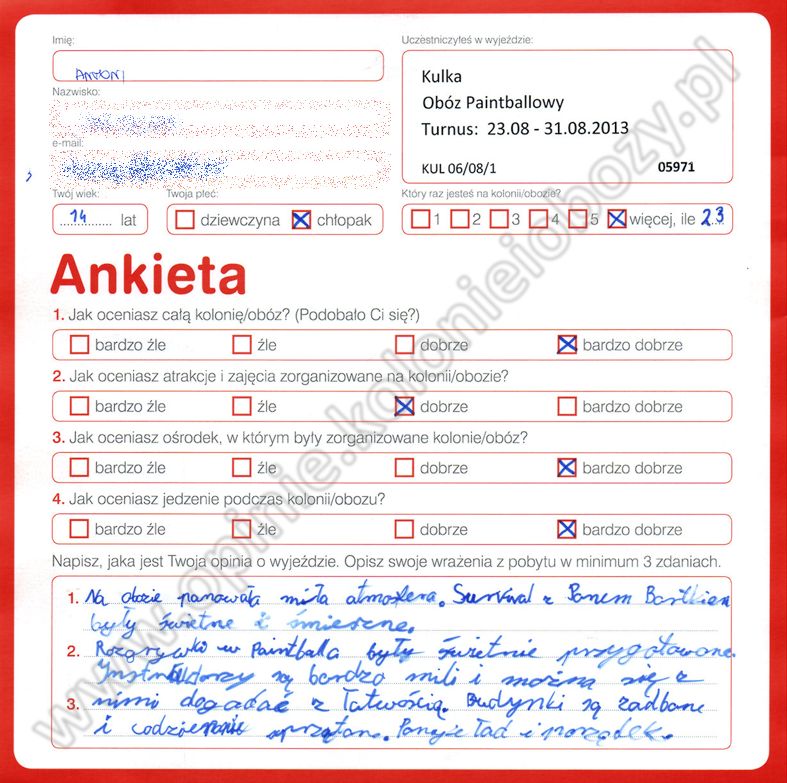 Imię:
Uczestniczyłeś w wyjeździe:
ANTONI
Kulka
Obóz Paintballowy
Turnus: 23.08 - 31.08.2013
KUL 06/08/1 05971
Nazwisko:
e-mail:
Twój wiek: Twoja płeć: Który raz jesteś na kolonii/obozie?
14 lat dziewczyna chłopak 1 2 3 4 5 więcej, ile 23
Ankieta
1. Jak oceniasz całą kolonię/obóz? (Podobało Ci się?)
bardzo źle źle dobrze bardzo dobrze
2. Jak oceniasz atrakcje i zajęcia zorganizowane na kolonii/obozie?
bardzo źle źle dobrze bardzo dobrze
3. Jak oceniasz ośrodek, w którym były zorganizowane kolonie/obóz?
bardzo źle źle dobrze bardzo dobrze
4. Jak oceniasz jedzenie podczas kolonii/obozu?
bardzo źle źle dobrze bardzo dobrze
Napisz, jaka jest Twoja opinia o wyjeździe. Opisz swoje wrażenia z pobytu w minimum 3 zdaniach.
1. Na obozie panowała miła atmosfera. Survival z Panem Bartkiem
były świetne i śmieszne.
2. Rozgrywki w Paintballa były świetnie przygotowane.
Instruktorzy są bardzo mili i można się z
3. nimi dogadać z łatwością. Budynki są zadbane
i codziennie sprzątane. Panuje ład i porządek.
www.opinie.kolonieiobozy.pl